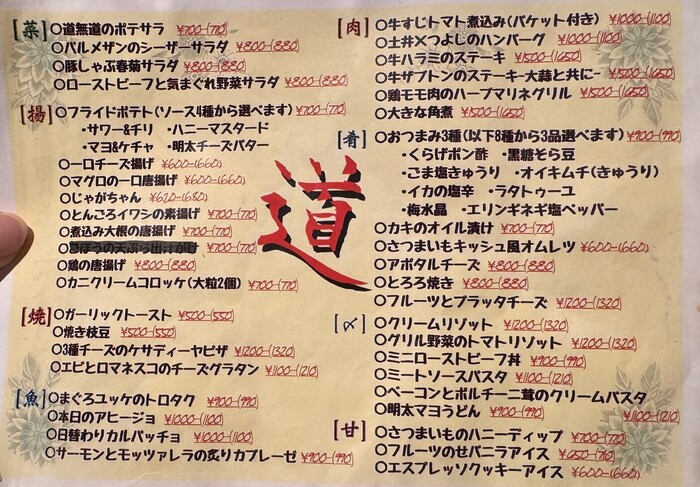 [菜]
〇道無道のポテサラ ¥700-(770)
〇パルメザンのシーザーサラダ ¥800-(880)
〇豚しゃぶ春菊サラダ ¥800-(880)
〇ローストビーフと気まぐれ野菜サラダ ¥800-(880)
[揚]
〇フライドポテト(ソース4種から選べます) ¥700-(770)
・サワー&チリ ・ハニーマスタード
・マヨ&ケチャ ・明太チーズバター
〇一口チーズ揚げ ¥600-(660)
〇マグロの一口唐揚げ ¥600-(660)
〇じゃがちゃん ¥620-(680)
〇とんごろイワシの素揚げ ¥700-(770)
〇煮込み大根の唐揚げ ¥700-(770)
〇ごぼうの天ぷら出汁がけ ¥700-(770)
〇鶏の唐揚げ ¥800-(880)
〇カニクリームコロッケ(大粒2個) ¥700-(770)
[焼]
〇ガーリックトースト ¥500-(550)
〇焼き枝豆 ¥500-(550)
〇3種チーズのケサディーヤピザ ¥1200-(1320)
〇エビとロマネスコのチーズグラタン ¥1100-(1210)
[魚]
〇まぐろユッケのトロタク ¥900-(990)
〇本日のアヒージョ ¥1000-(1100)
〇日替わりカルパッチョ ¥1000-(1100)
〇サーモンとモッツァレラの炙りカプレーゼ ¥900-(990)
道
[肉]
〇牛すじトマト煮込み(バケット付き) ¥1000-(1100)
〇土井×つよしのハンバーグ ¥1000-(1100)
〇牛ハラミのステーキ ¥1500-(1650)
〇牛ザブトンのステーキ-大蒜と共に- ¥1500-(1650)
〇鶏モモ肉のハーブマリネグリル ¥1500-(1650)
〇大きな角煮 ¥1500-(1650)
[肴]
〇おつまみ3種(以下8種から3品選べます) ¥900-(990)
・くらげポン酢 ・黒糖そら豆
・ごま塩きゅうり ・オイキムチ(きゅうり)
・イカの塩辛 ・ラタトゥーユ
・梅水晶 ・エリンギネギ塩ペッパー
〇カキのオイル漬け ¥700-(770)
〇さつまいもキッシュ風オムレツ ¥600-(660)
〇アボタルチーズ ¥800-(880)
〇とろろ焼き ¥800-(880)
〇フルーツとブラッタチーズ ¥1200-(1320)
[〆]
〇クリームリゾット ¥1200-(1320)
〇グリル野菜のトマトリゾット ¥1200-(1320)
〇ミニローストビーフ丼 ¥900-(990)
〇ミートソースパスタ ¥1100-(1210)
〇ベーコンとポルチーニ茸のクリームパスタ ¥1100-(1210)
〇明太マヨうどん ¥900-(990)
[甘]
〇さつまいものハニーディップ ¥700-(770)
〇フルーツのせバニラアイス ¥650-(710)
〇エスプレッソクッキーアイス ¥600-(660)